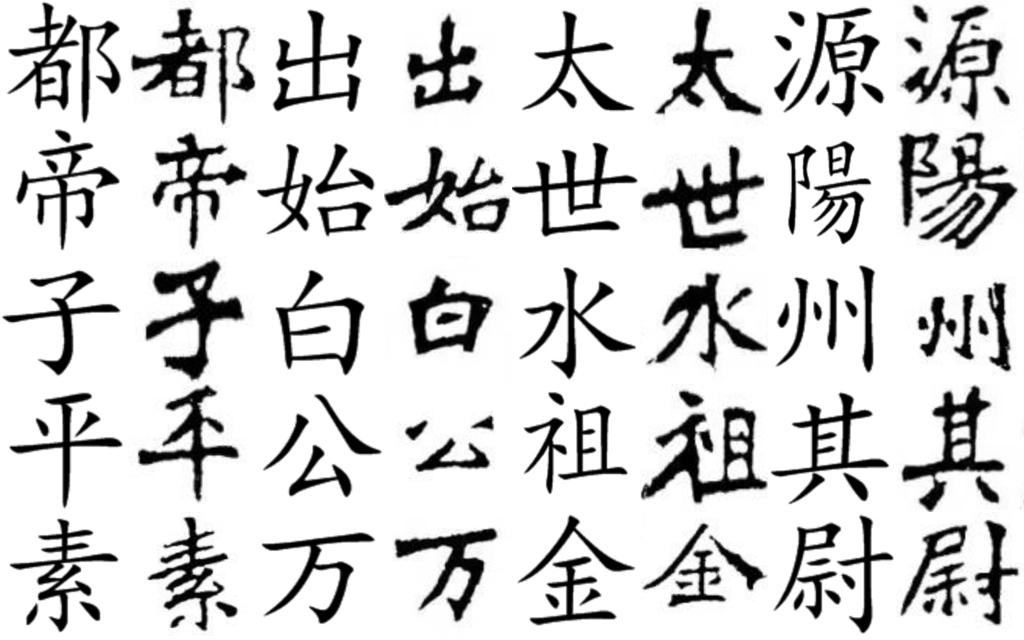 都都出出太太源源
帝帝始始世世陽陽
子子白白水水州州
平平公公祖祖其其
素素万万金金尉尉